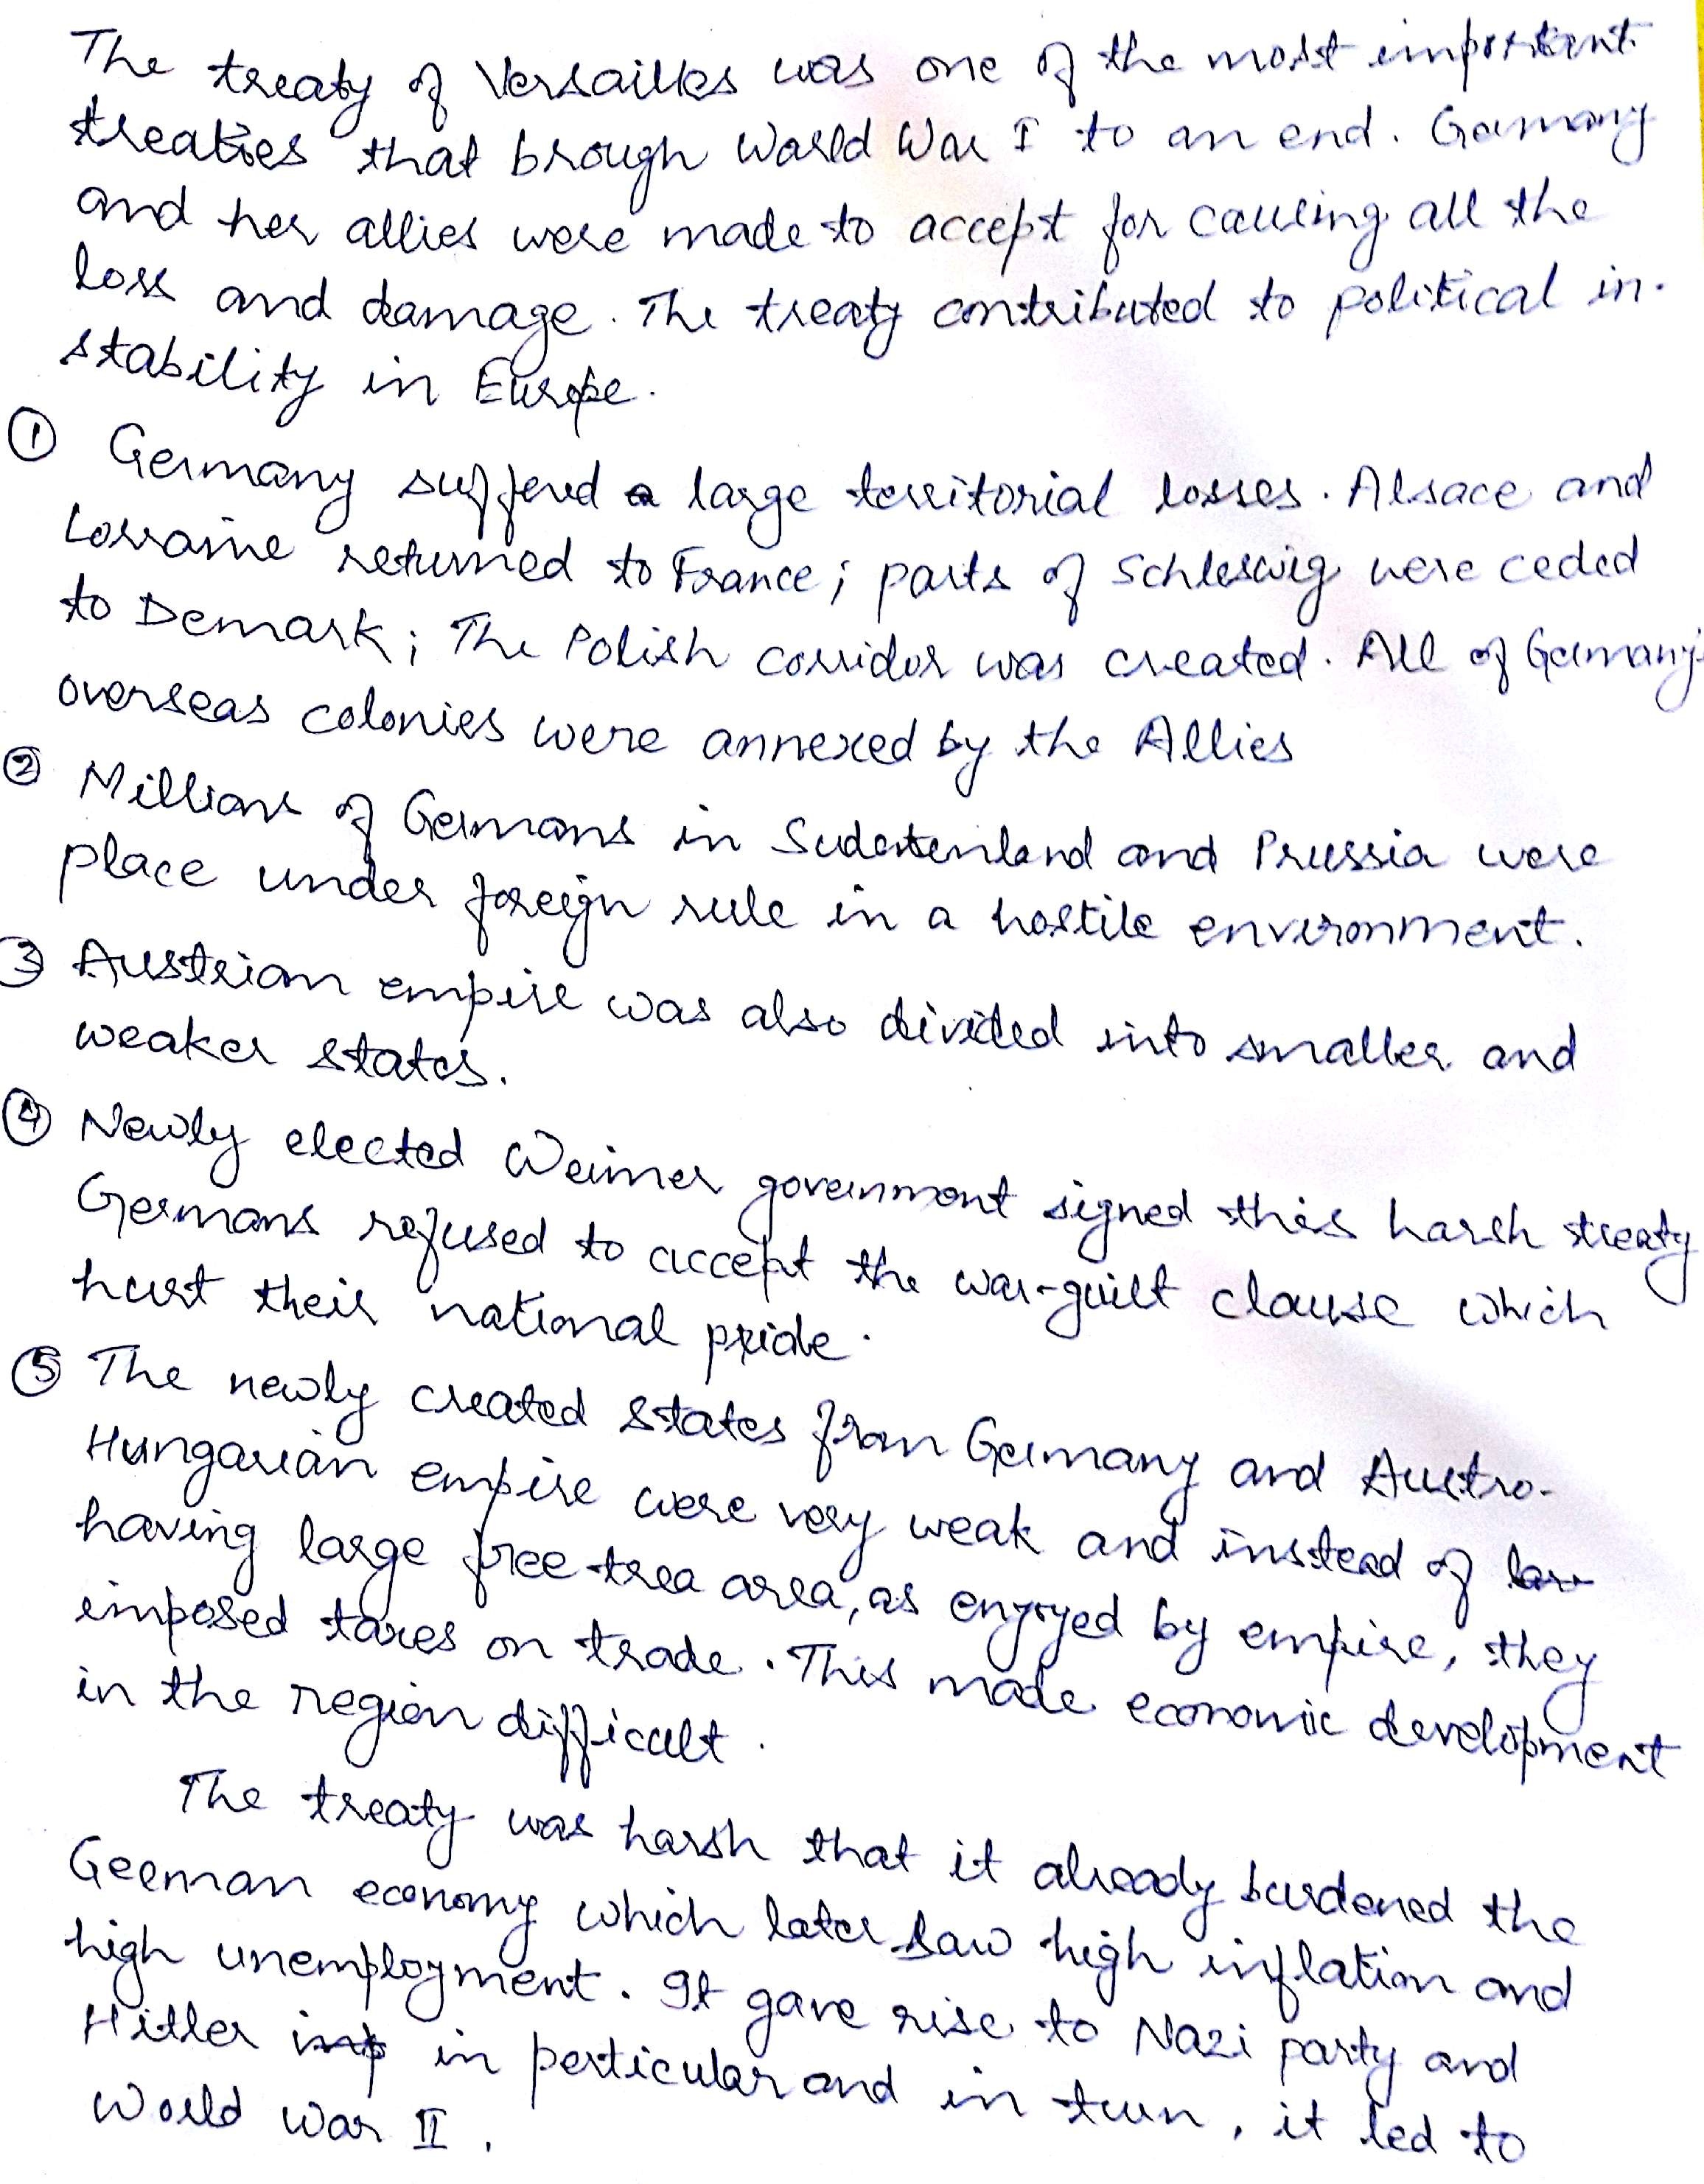 The treaty of Versailles was one of the most important
treaties that brough World War I to an end. Germany
and her allies were made to accept for causing all the
loss and damage. The treaty contributed to political in-
stability in Europe.
① Germany suffered a large territorial losses. Alsace and
Lorraine returned to France; parts of Schleswig were ceded
to Demark; The Polish corridor was created. All of Germany's
overseas colonies were annexed by the Allies
② Millions of Germans in Sudetenland and Prussia were
place under foreign rule in a hostile environment.
3 Austrian empire was also divided into smaller and
weaker states.
④ Newly elected Weimer government signed this harsh treaty
Germans refused to accept the war-guilt clause which
hurt their national pride.
⑤ The newly created states from Germany and Austro-
Hungarian empire were very weak and instead of
having large free trea area, as enjoyed by empire, they
imposed taxes on trade. This made economic development
in the region difficult.
The treaty was harsh that it already burdened the
German economy which later saw high inflation and
high unemployment. It gave rise to Nazi party and
Hitler in perticular and in turn, it led to
World War II.